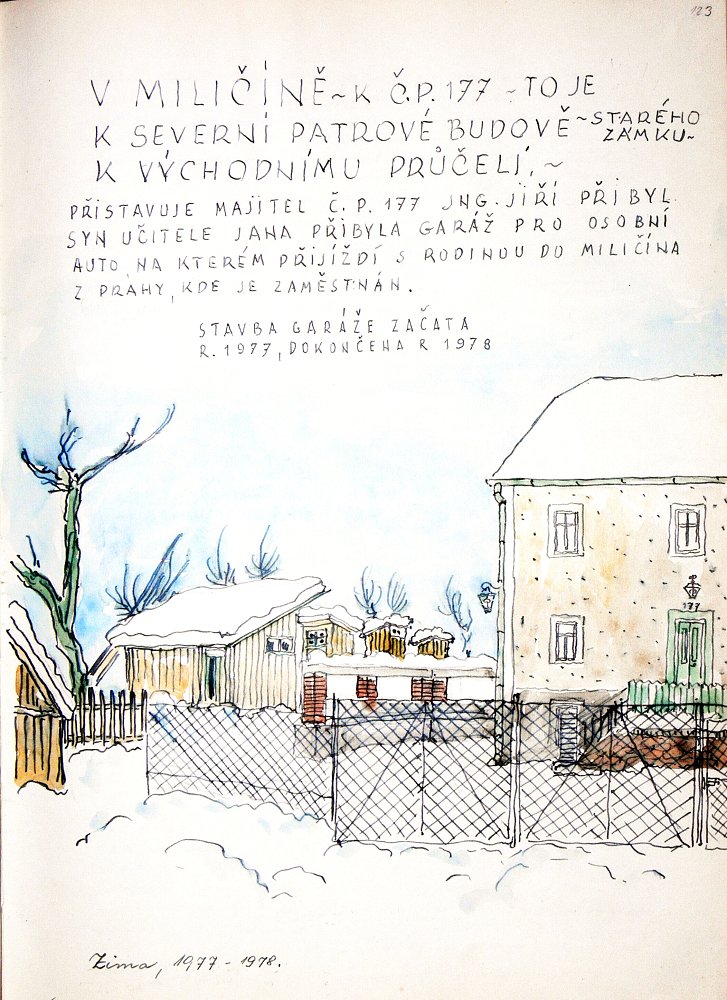 123
V MILIČÍNĚ ~ K Č.P. 177 ~ TO JE
K SEVERNÍ PATROVÉ BUDOVĚ ~ STARÉHO
ZÁMKU ~
K VÝCHODNÍMU PRŮČELÍ, ~
PŘISTAVUJE MAJITEL Č. P. 177 JNG. JIŘÍ PŘIBYL
SYN UČITELE JANA PŘIBYLA GARÁŽ PRO OSOBNÍ
AUTO, NA KTERÉM PŘIJÍŽDÍ S RODINOU DO MILIČÍNA
Z PRAHY, KDE JE ZAMĚSTNÁN.
STAVBA GARÁŽE ZAČATA
R. 1977, DOKONČENA R 1978
177
Zima, 1977 - 1978.